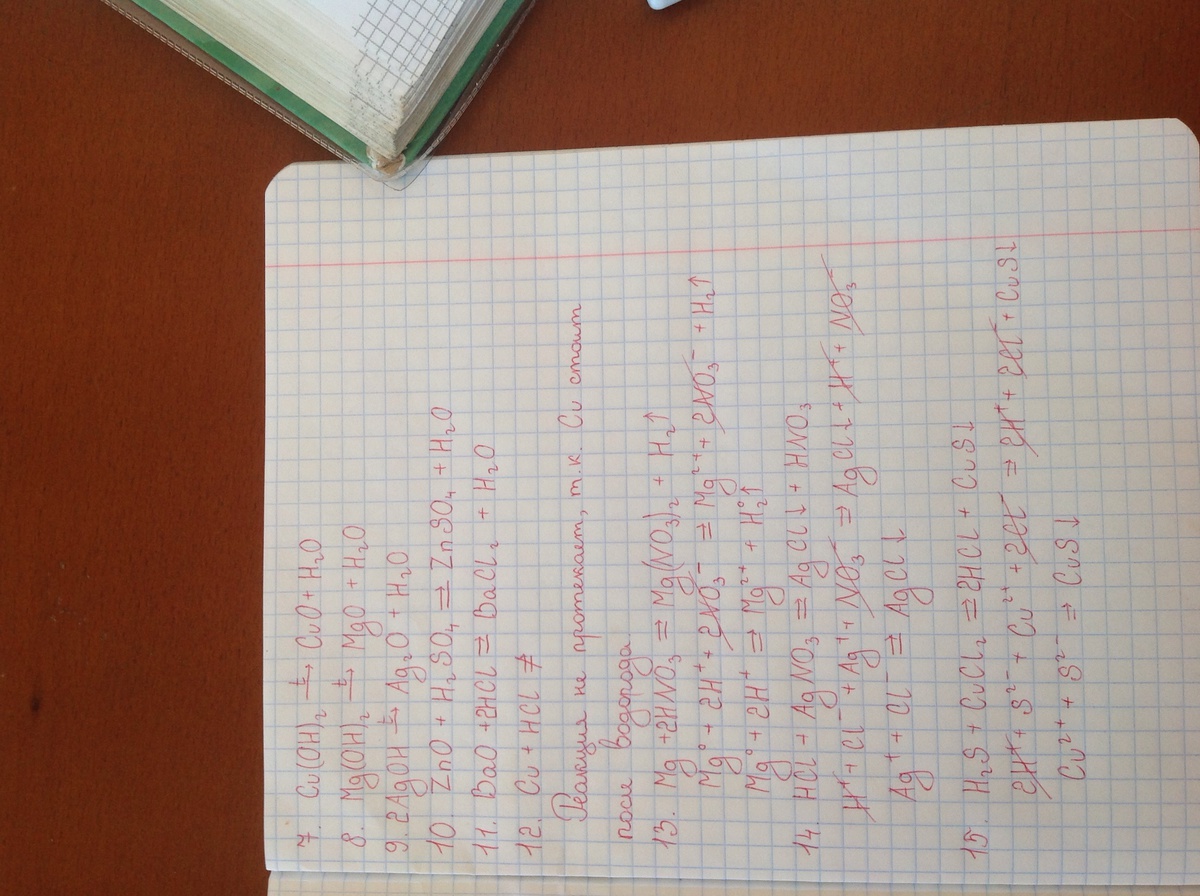 7. Cu(OH)₂ →ᵗ CuO + H₂O
8. Mg(OH)₂ →ᵗ MgO + H₂O
9. 2AgOH →ᵗ Ag₂O + H₂O
10 ZnO + H₂SO₄ = ZnSO₄ + H₂O
11. BaO + 2HCl = BaCl₂ + H₂O
12. Cu + HCl ≠
Реакция не протекает, т.к. Cu стоит
после водорода
13. Mg + 2HNO₃ = Mg(NO₃)₂ + H₂↑
Mg⁰ + 2H⁺ + 2NO₃⁻ = Mg²⁺ + 2NO₃⁻ + H₂↑
Mg⁰ + 2H⁺ = Mg²⁺ + H₂⁰↑
14. HCl + AgNO₃ = AgCl↓ + HNO₃
H⁺ + Cl⁻ + Ag⁺ + NO₃⁻ = AgCl↓ + H⁺ + NO₃⁻
Ag⁺ + Cl⁻ = AgCl↓
15. H₂S + CuCl₂ = 2HCl + CuS↓
2H⁺ + S²⁻ + Cu²⁺ + 2Cl⁻ = 2H⁺ + 2Cl⁻ + CuS↓
Cu²⁺ + S²⁻ = CuS↓